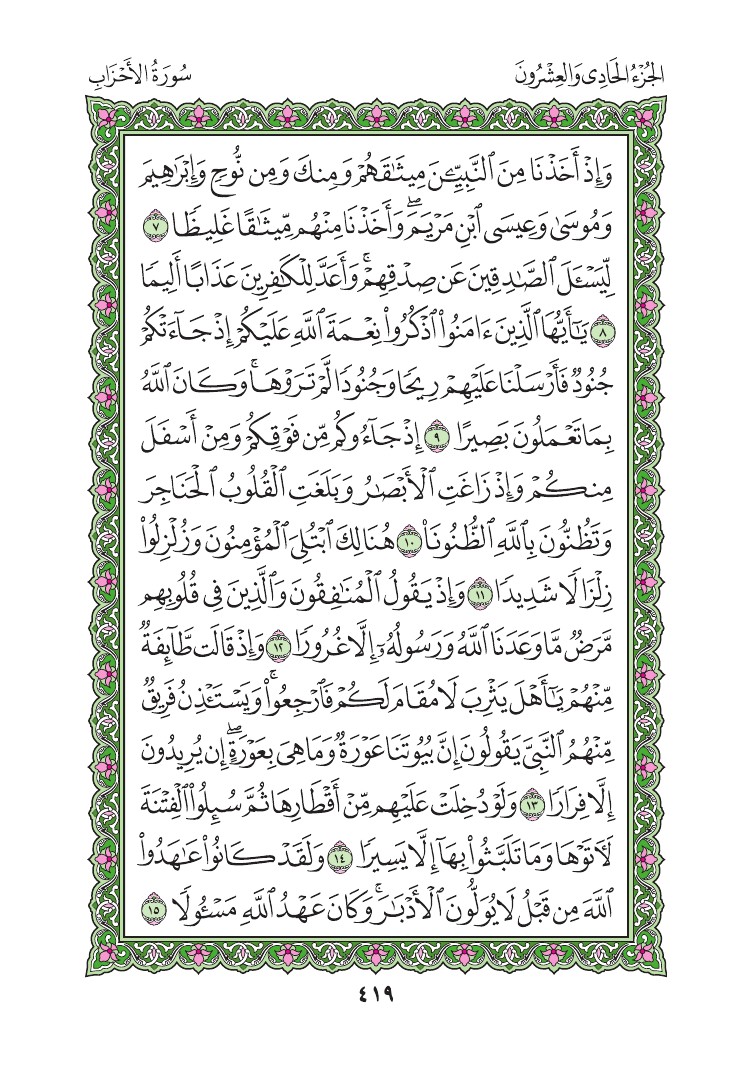 الجُزْءُ الحَادِي وَالعِشْرُونَ
سُورَةُ الأَحْزَابِ
وَإِذْ أَخَذْنَا مِنَ ٱلنَّبِيِّـۧنَ مِيثَـٰقَهُمْ وَمِنكَ وَمِن نُّوحٍ وَإِبْرَٰهِيمَ
وَمُوسَىٰ وَعِيسَى ٱبْنِ مَرْيَمَۖ وَأَخَذْنَا مِنْهُم مِّيثَـٰقًا غَلِيظًا ٧
لِّيَسْـَٔلَ ٱلصَّـٰدِقِينَ عَن صِدْقِهِمْۚ وَأَعَدَّ لِلْكَـٰفِرِينَ عَذَابًا أَلِيمًا
٨ يَـٰٓأَيُّهَا ٱلَّذِينَ ءَامَنُوا۟ ٱذْكُرُوا۟ نِعْمَةَ ٱللَّهِ عَلَيْكُمْ إِذْ جَآءَتْكُمْ
جُنُودٌ فَأَرْسَلْنَا عَلَيْهِمْ رِيحًا وَجُنُودًا لَّمْ تَرَوْهَاۚ وَكَانَ ٱللَّهُ
بِمَا تَعْمَلُونَ بَصِيرًا ٩ إِذْ جَآءُوكُم مِّن فَوْقِكُمْ وَمِنْ أَسْفَلَ
مِنكُمْ وَإِذْ زَاغَتِ ٱلْأَبْصَـٰرُ وَبَلَغَتِ ٱلْقُلُوبُ ٱلْحَنَاجِرَ
وَتَظُنُّونَ بِٱللَّهِ ٱلظُّنُونَا۠ ١٠ هُنَالِكَ ٱبْتُلِيَ ٱلْمُؤْمِنُونَ وَزُلْزِلُوا۟
زِلْزَالًا شَدِيدًا ١١ وَإِذْ يَقُولُ ٱلْمُنَـٰفِقُونَ وَٱلَّذِينَ فِى قُلُوبِهِم
مَّرَضٌ مَّا وَعَدَنَا ٱللَّهُ وَرَسُولُهُۥٓ إِلَّا غُرُورًا ١٢ وَإِذْ قَالَت طَّآئِفَةٌ
مِّنْهُمْ يَـٰٓأَهْلَ يَثْرِبَ لَا مُقَامَ لَكُمْ فَٱرْجِعُوا۟ۚ وَيَسْتَـْٔذِنُ فَرِيقٌ
مِّنْهُمُ ٱلنَّبِىَّ يَقُولُونَ إِنَّ بُيُوتَنَا عَوْرَةٌ وَمَا هِىَ بِعَوْرَةٍۖ إِن يُرِيدُونَ
إِلَّا فِرَارًا ١٣ وَلَوْ دُخِلَتْ عَلَيْهِم مِّنْ أَقْطَارِهَا ثُمَّ سُئِلُوا۟ ٱلْفِتْنَةَ
لَـَٔاتَوْهَا وَمَا تَلَبَّثُوا۟ بِهَآ إِلَّا يَسِيرًا ١٤ وَلَقَدْ كَانُوا۟ عَـٰهَدُوا۟
ٱللَّهَ مِن قَبْلُ لَا يُوَلُّونَ ٱلْأَدْبَـٰرَۚ وَكَانَ عَهْدُ ٱللَّهِ مَسْـُٔولًا ١٥
٤١٩